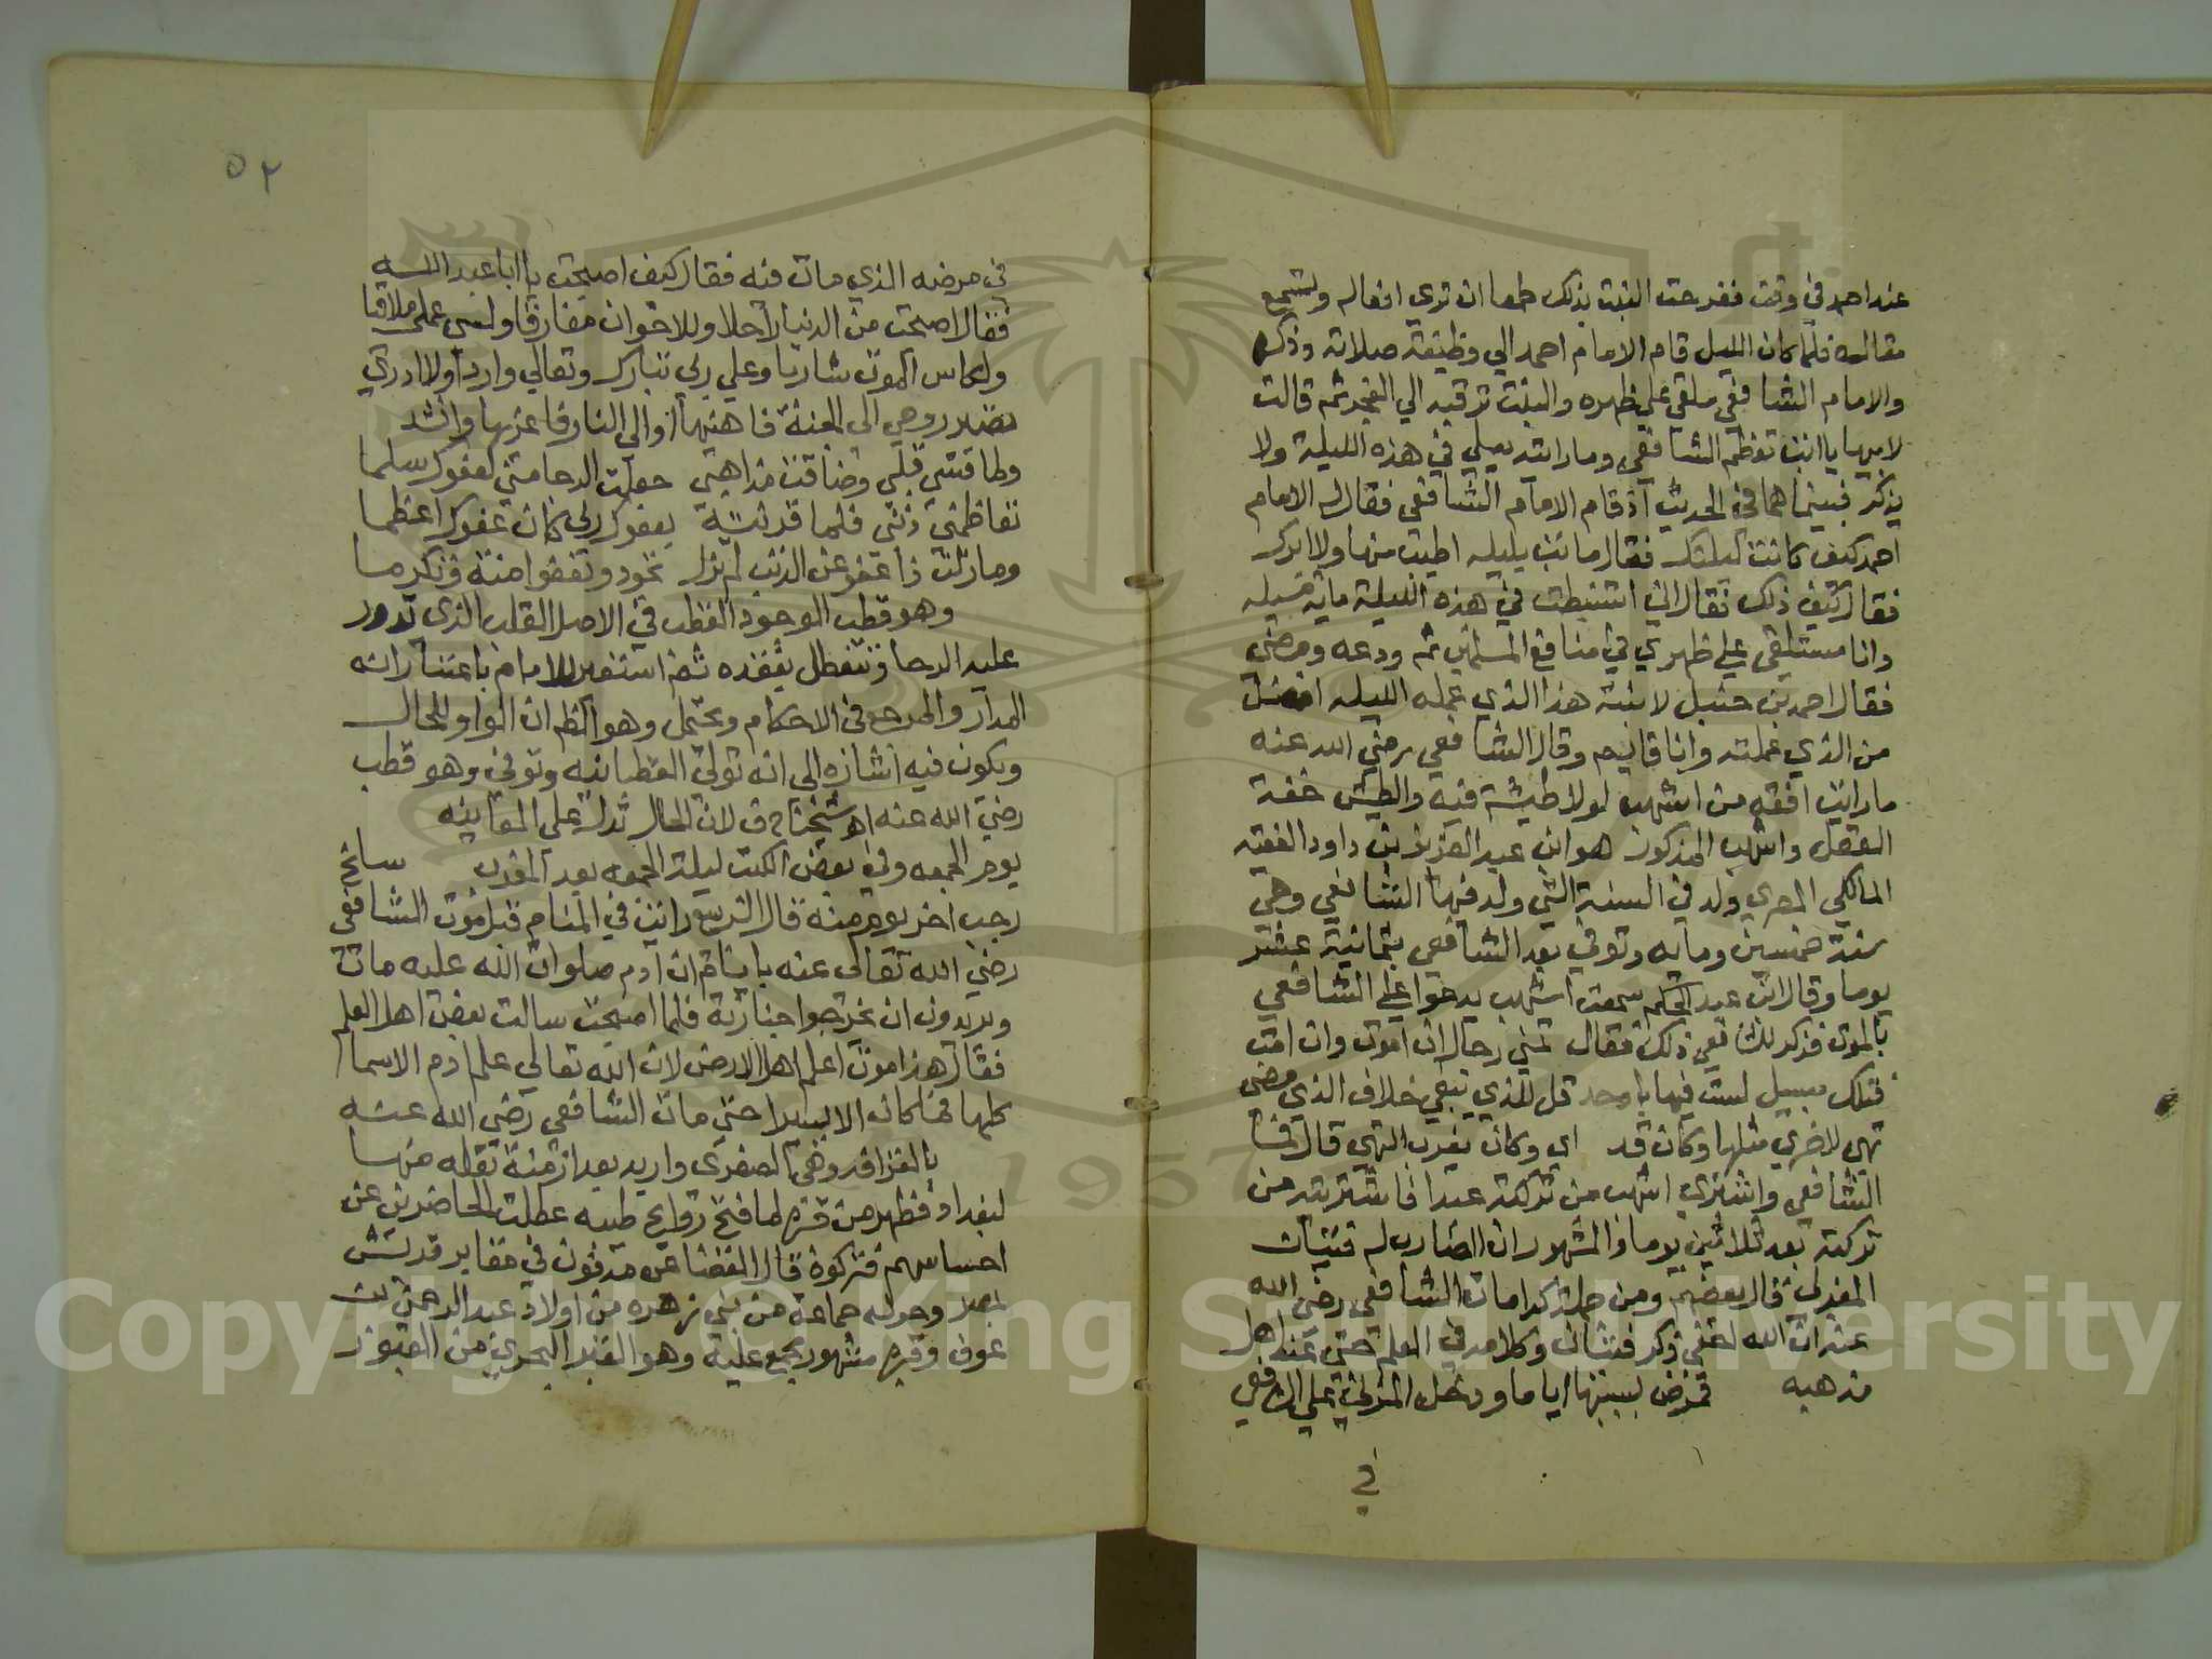 عند احمد في وقت ففرحت البنت بذلك طمعا ان تري افعاله وتسمع
مقاله فلما كان الليل قام الامام احمد الي وظيفته صلاته وذكره
والامام الشافعي ملقي علي ظهره والبنت ترقبه الي الفجر ثم قالت
لابيها يا ابت تعظم الشافعي وما رايته يصلي في هذه الليلة ولا
يذكر فبينما هما في الحديث اذ قام الامام الشافعي فقال له الامام
احمد كيف كانت ليلتك فقال ما بت بليله اطيب منها ولا ابرك
فقال كيف ذلك فقال اني استنبطت في هذه الليلة ماية مسيله
وانا مستلقي علي ظهري في منافع المسلمين ثم ودعه ومضي
فقال احمد بن حنبل لابنته هذا الذي عمله الليله افضل
من الذي عملته وانا قايم وقال الشافعي رضي الله عنه
ما رايت افقه من اشهب لولا طيشة فيه والطيش خفة
العقل واشهب المذكور هو ابن عبد العزيز بن داود الفقيه
المالكي المصري ولد في السنة التي ولد فيها الشافعي وهي
سنة خمسين ومايه وتوفي بعد الشافعي بثمانية عشر
يوما وقال ابن عبد الحكم سمعت اشهب يدعوا علي الشافعي
بالموت فذكر للشافعي ذلك فقال تمني رجال ان اموت وان امت
فتلك سبيل لست فيها باوحد قل للذي تبقي خلاف الذي مضي
تهي لاخري مثلها وكان قد اي وكان بقرب التهي قال فمات
الشافعي واشتري اشهب من تركته عبدا فاشتريته من
تركته بعد ثلاثين يوما والمشهور ان الضارب له فتيان
المغربي قال بعضهم ومن جملة كرامات الشافعي رضي الله
عنه ان الله اخفي ذكر فتيان وكلامه في العلم حتي عند اهل
مذهبه فمرض بسببها اياما ودخل المزني علي الشافعي
في
٥٢
في مرضه الذي مات فيه فقال كيف اصبحت يا ابا عبد الله
فقال اصبحت من الدنيا راحلا وللاخوان مفارقا ولسي عملي ملاقيا
ولكاس الموت شاربا وعلي ربي تبارك وتعالي واردا ولا ادري
تصير روحي الي الجنة فاهنيها او الي النار فاعزيها وانشد
ولما قسي قلبي وضاقت مذاهبي جعلت الرجا مني لعفوك سلما
تعاظمني ذنبي فلما قرنته بعفوك ربي كان عفوك اعظما
وما زلت ذا عفو عن الذنب لم تزل تجود وتعفوا منة وتكرما
وهو قطب الوجود القطب في الاصل القلب الذي تدور
عليه الرحا وتتعطل بفقده ثم استعير للامام باعتبار انه
المدار والمرجع في الاحكام ويحتمل وهو الظم ان الواو للحال
ويكون فيه اشارة الي انه تولي القطبانيه وتوفي وهو قطب
رضي الله عنه اهـ شيخنا ح ف لان الحال تدل علي المقارنه
يوم الجمعه وفي بعض الكتب ليلة الجمعه بعد المغرب سلخ
رجب اخر يوم منه قال الربيع رايت في المنام قبل موت الشافعي
رضي الله تعالي عنه بايام ان ادم صلوات الله عليه مات
ويريدون ان يخرجوا جنازته فلما اصبحت سالت بعض اهل العلم
فقال هذا موت اعلم اهل الارض لان الله تعالي علم ادم الاسما
كلها فما كان الا يسيرا حتي مات الشافعي رضي الله عنه
بالقرافه وهي الصغري واريد بعد ازمنة نقله منها
لبغداد فظهر من قبره لما فتح روايح طيبه عطلت الحاضرين عن
احساسهم فتركوه قال القضاعي مدفون في مقابر قريش
بمصر وحوله جماعة من بني زهره من اولاد عبد الرحمن بن
عوف وقبره مشهور مجمع عليه وهو القبر البحري من القبور
Copyright © King Saud University
1957